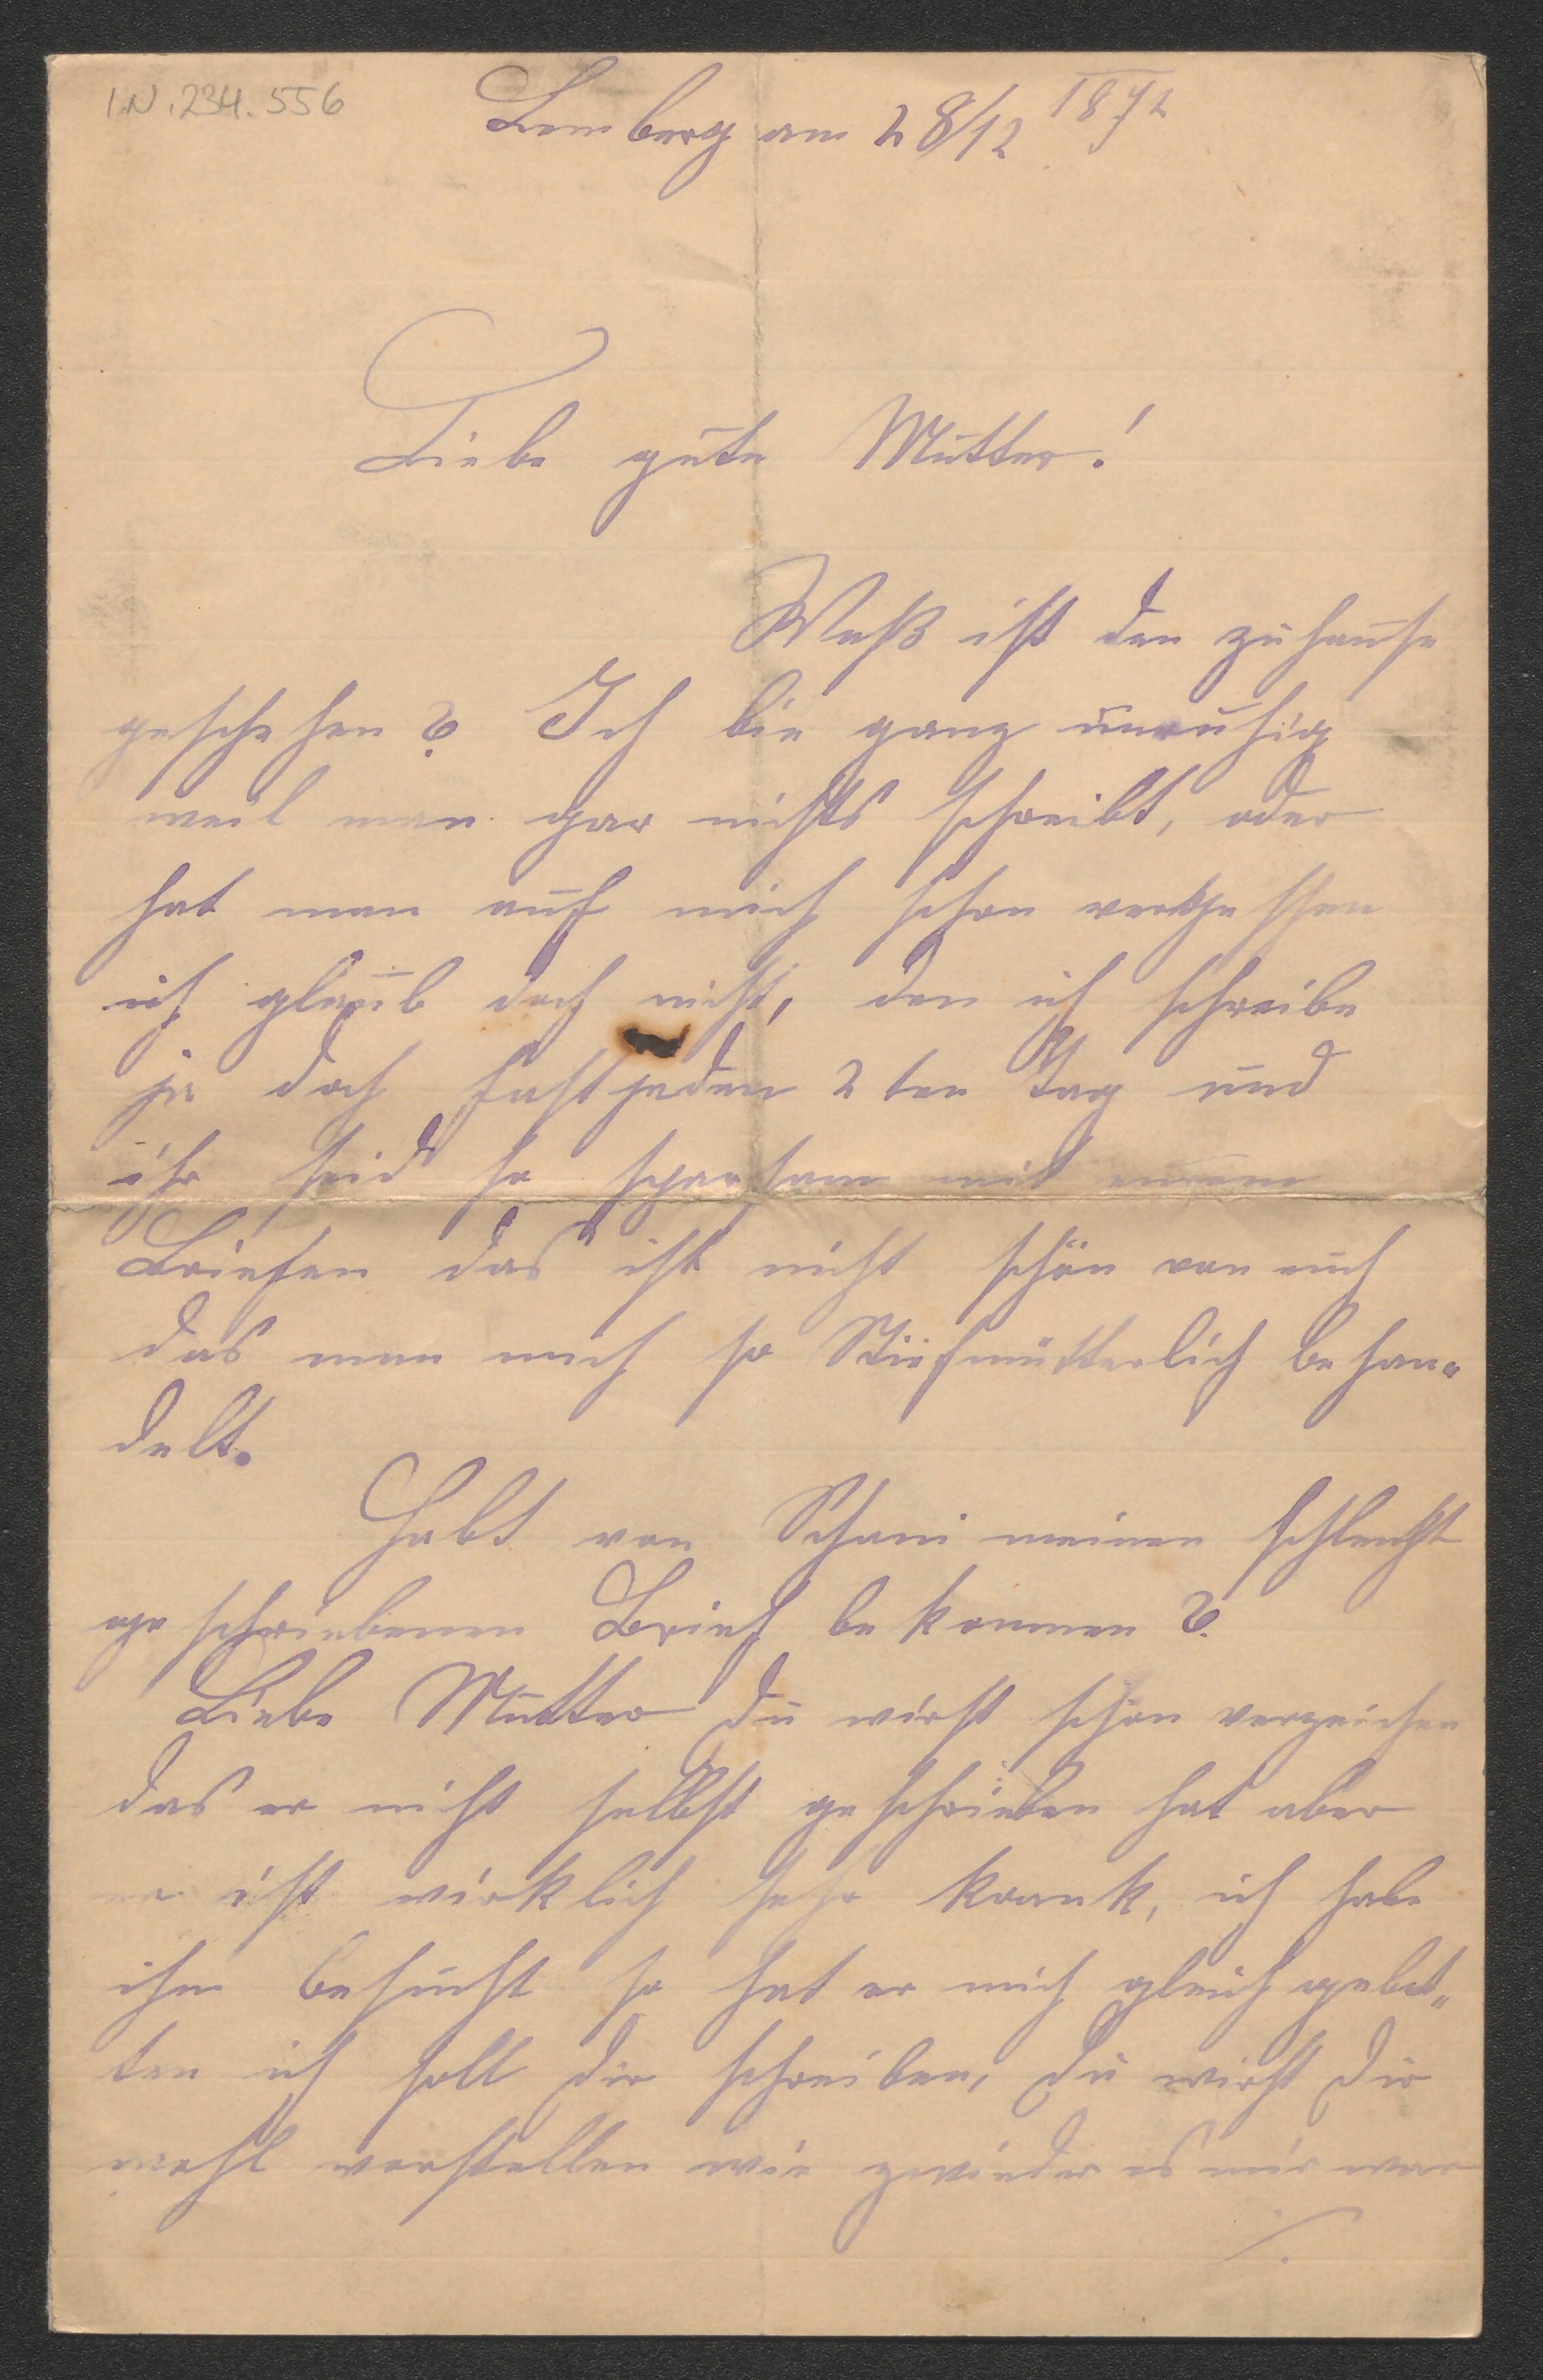 I.N. 234.556
Lemberg am 28/12 1872
Liebe gute Mutter!
Waß ist den zuhause
geschehen? Ich bin ganz unruhig
weil man gar nichts schreibt, oder
hat man auf mich schon vergessen
ich glaub doch nicht, den ich schreibe
ja doch fast jeden 2ten Tag und
ihr seid so sparsam mit euren
Briefen das ist nicht schön von euch
das man mich so Stiefmütterlich behan„
delt.
Habt von Schani meinen schlecht
geschriebenen Brief bekommen?
Liebe Mutter du wirst schon verzeihen
das er nicht selbst geschrieben hat aber
er ist wirklich sehr krank, ich habe
ihn besucht so hat er mich gleich gebet„
ten ich soll dir schreiben, du wirst dir
wohl vorstellen wie zwieder es mir war
./.